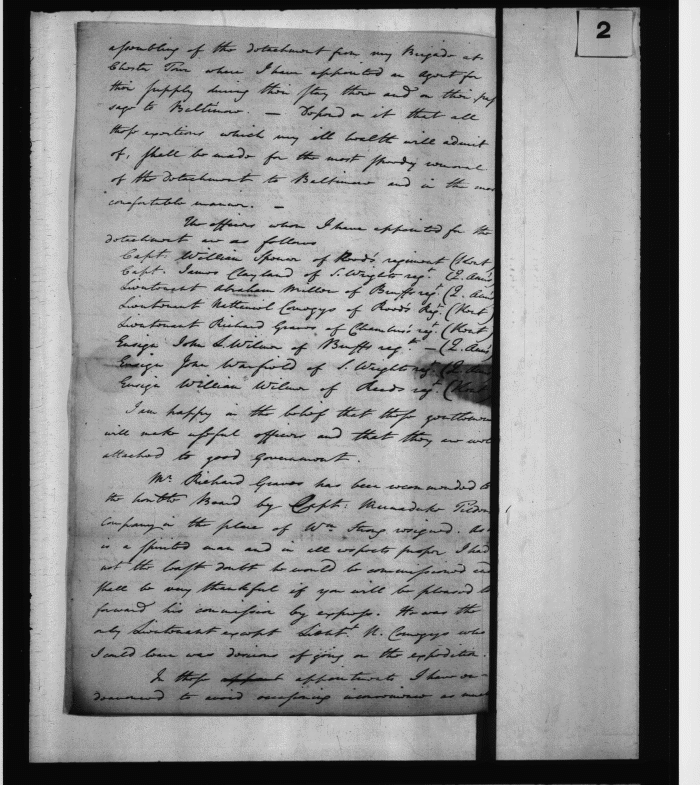 2
assembling of the detachment from my Brigade at
Chester Town where I have appointed an agent for
their supply during their stay there and on their pas
sage to Baltimore. — Depend on it that all
those exertions which my ill health will admit
of, shall be made for the most speedy removal
of the detachment to Baltimore and in the most
comfortable manner. —
The officers whom I have appointed for the
detachment are as follows
Capt. William Spencer of Reeds regiment (Kent
Capt. James Clayland of S. Wrights regt. (Q. Ann's
Lieutenant Abraham Miller of Bruffs regt. (Q. Ann's
Lieutenant Nathaniel Comegys of Reeds Regt. (Kent
Lieutenant Richard Graves of Chambers regt. (Kent)
Ensign John S. Wilmer of Bruffs regt. — (Q. Ann's
Ensign Jno. Warfield of S. Wrights regt. (Q. Ann
Ensign William Wilmer of Reeds regt. (Kent
I am happy in the belief that these gentlemen
will make useful officers and that they are well
attached to good Government.
Mr. Richard Graves has been recommended to
the honble Board by Capt. Marmaduke Tilden
company in the place of Wm Strong resigned. As
is a spirited man and in all respects proper I had
not the least doubt he would be commissioned and
shall be very thankful if you will be pleased to
forward his commission by express. He was the
only Lieutenant except Lieutt. N. Comegys who
I could learn was desirous of going on the expedition.
In these appointments I have en-
deavoured to avoid occasioning as much